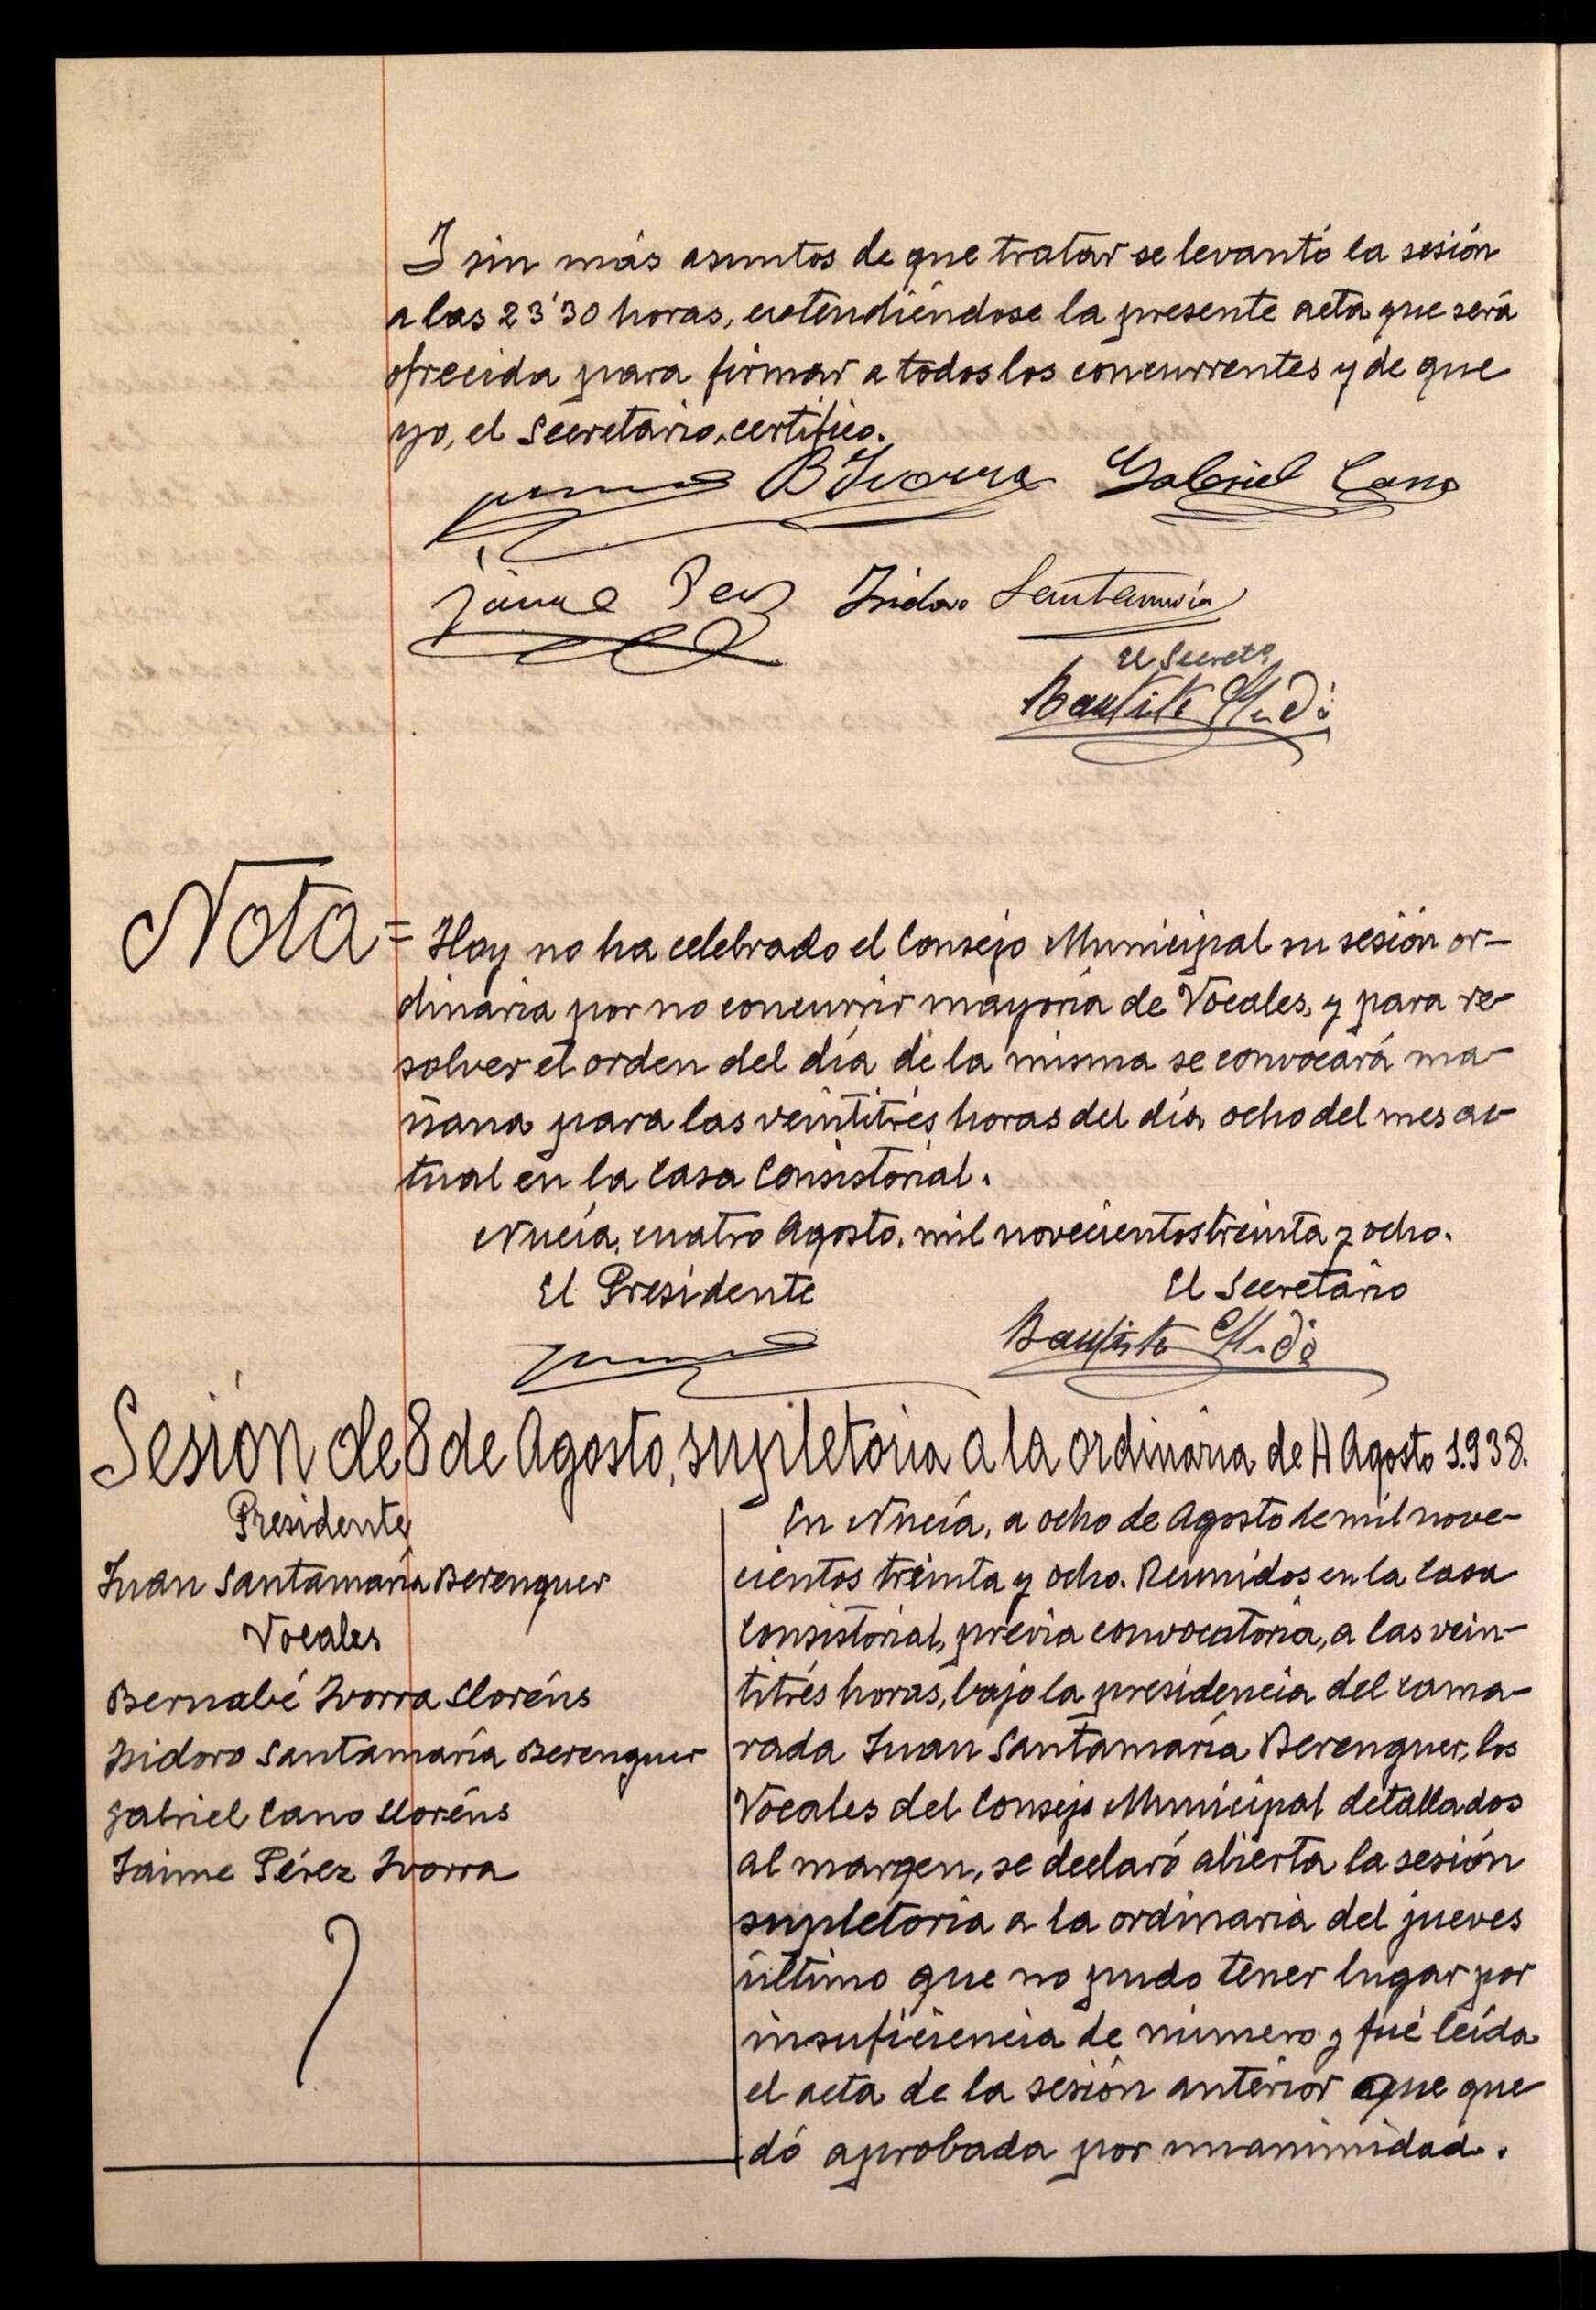 Y sin más asuntos de que tratar se levantó la sesión
a las 23'30 horas, extendiéndose la presente acta que será
ofrecida para firmar a todos los concurrentes y de que
yo, el Secretario, certifico.
B Ivorra Gabriel Cano
Jaime Perez Isidoro Santamaría
El Secretº
Bautista
Nota = Hoy no ha celebrado el Consejo Municipal su sesión or-
dinaria por no concurrir mayoría de Vocales, y para re-
solver el orden del día de la misma se convocará ma-
ñana para las veintitrés horas del día ocho del mes ac-
tual en la Casa Consistorial.
Nucía, cuatro Agosto, mil novecientos treinta y ocho.
El Presidente El Secretario
Bautista
Sesión de 8 de Agosto, supletoria a la ordinaria de 4 Agosto 1.938.
Presidente
Juan Santamaría Berenguer
Vocales
Bernabé Ivorra Lloréns
Isidoro Santamaría Berenguer
Gabriel Cano Lloréns
Jaime Pérez Ivorra
En Nucía, a ocho de Agosto de mil nove-
cientos treinta y ocho. Reunidos en la Casa
Consistorial, previa convocatoria, a las vein-
titrés horas, bajo la presidencia del cama-
rada Juan Santamaría Berenguer, los
Vocales del Consejo Municipal detallados
al margen, se declaró abierta la sesión
supletoria a la ordinaria del jueves
último que no pudo tener lugar por
insuficiencia de número y fué leída
el acta de la sesión anterior que que
dó aprobada por unanimidad.